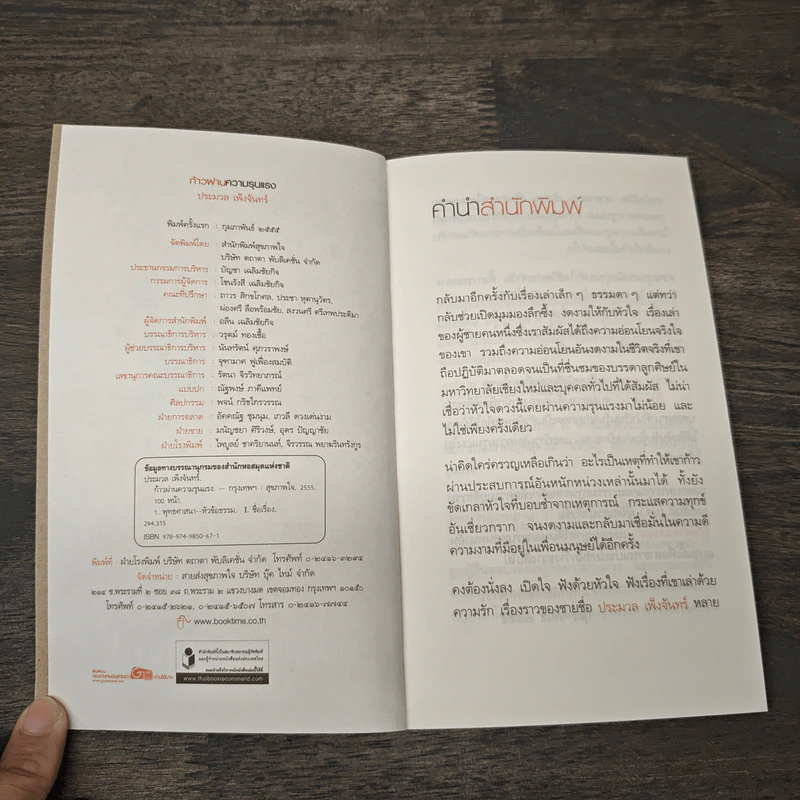 ก้าวผ่านความรุนแรง
ประมวล เพ็งจันทร์
พิมพ์ครั้งแรก : กุมภาพันธ์ ๒๕๕๕
จัดพิมพ์โดย : สำนักพิมพ์สุขภาพใจ
บริษัท ตถาตา พับลิเคชั่น จำกัด
ประธานกรรมการบริหาร : บัญชา เฉลิมชัยกิจ
กรรมการผู้จัดการ : โชนรังสี เฉลิมชัยกิจ
คณะที่ปรึกษา : ถาวร สิกขโกศล, ประชา หุตานุวัตร,
ผ่องศรี ลือพร้อมชัย, สงวนศรี ตรีเทพประติมา
ผู้จัดการสำนักพิมพ์ : อลีน เฉลิมชัยกิจ
บรรณาธิการบริหาร : วรุตม์ ทองเชื้อ
ผู้ช่วยบรรณาธิการบริหาร : นันทรัตน์ ศุภวราพงษ์
บรรณาธิการ : จุฑามาศ ฟูเฟื่องสมบัติ
เลขานุการคณะบรรณาธิการ : รัตนา จิรวิทยาภรณ์
แบบปก : ณัฐพงษ์ ภาคีแพทย์
ศิลปกรรม : พจน์ กริชไกรวรรณ
ฝ่ายการตลาด : อัคคณัฐ ชุมนุม, เกวลี ดวงเด่นงาม
ฝ่ายขาย : มนัญชยา ศิริวงษ์, อุดร ปัญญาชัย
ฝ่ายโรงพิมพ์ : ไพบูลย์ ชาคริยานนท์, จิรวรรณ พยาฆรินทรังกูร
ข้อมูลทางบรรณานุกรมของสำนักหอสมุดแห่งชาติ
ประมวล เพ็งจันทร์.
ก้าวผ่านความรุนแรง. -- กรุงเทพฯ : สุขภาพใจ, 2555.
100 หน้า.
1. พุทธศาสนา--หัวข้อธรรม. I. ชื่อเรื่อง.
294.315
ISBN 978-974-9850-67-1
พิมพ์ที่ : ฝ่ายโรงพิมพ์ บริษัท ตถาตา พับลิเคชั่น จำกัด โทรศัพท์ ๐-๒๔๑๖-๓๒๙๔
จัดจำหน่าย : สายส่งสุขภาพใจ บริษัท บุ๊ค ไทม์ จำกัด
๒๑๔ ซ.พระรามที่ ๒ ซอย ๓๘ ถ.พระราม ๒ แขวงบางมด เขตจอมทอง กรุงเทพฯ ๑๐๑๕๐
โทรศัพท์ ๐-๒๔๑๕-๒๖๒๑, ๐-๒๔๑๕-๖๕๐๗ โทรสาร ๐-๒๔๑๖-๗๗๔๔
www.booktime.co.th
สำนักพิมพ์นี้เป็นสมาชิกสมาคมผู้จัดพิมพ์
และผู้จำหน่ายหนังสือแห่งประเทศไทย
www.thaibookrecommend.com
คำนำสำนักพิมพ์
กลับมาอีกครั้งกับเรื่องเล่าเล็ก ๆ ธรรมดา ๆ แต่ทว่า
กลับช่วยเปิดมุมมองลึกซึ้ง งดงามให้กับหัวใจ เรื่องเล่า
ของผู้ชายคนหนึ่งซึ่งเราสัมผัสได้ถึงความอ่อนโยนจริงใจ
ของเขา รวมถึงความอ่อนโยนอันงดงามในชีวิตจริงที่เขา
ถือปฏิบัติมาตลอดจนเป็นที่ชื่นชมของบรรดาลูกศิษย์ใน
มหาวิทยาลัยเชียงใหม่และบุคคลทั่วไปที่ได้สัมผัส ไม่น่า
เชื่อว่าหัวใจดวงนี้เคยผ่านความรุนแรงมาไม่น้อย และ
ไม่ใช่เพียงครั้งเดียว
น่าคิดใคร่ครวญเหลือเกินว่า อะไรเป็นเหตุที่ทำให้เขาก้าว
ผ่านประสบการณ์อันหนักหน่วงเหล่านั้นมาได้ ทั้งยัง
ขัดเกลาหัวใจที่บอบช้ำจากเหตุการณ์ กระแสความทุกข์
อันเชี่ยวกราก จนงดงามและกลับมาเชื่อมั่นในความดี
ความงามที่มีอยู่ในเพื่อนมนุษย์ได้อีกครั้ง
คงต้องนั่งลง เปิดใจ ฟังด้วยหัวใจ ฟังเรื่องที่เขาเล่าด้วย
ความรัก เรื่องราวของชายชื่อ ประมวล เพ็งจันทร์ หลาย